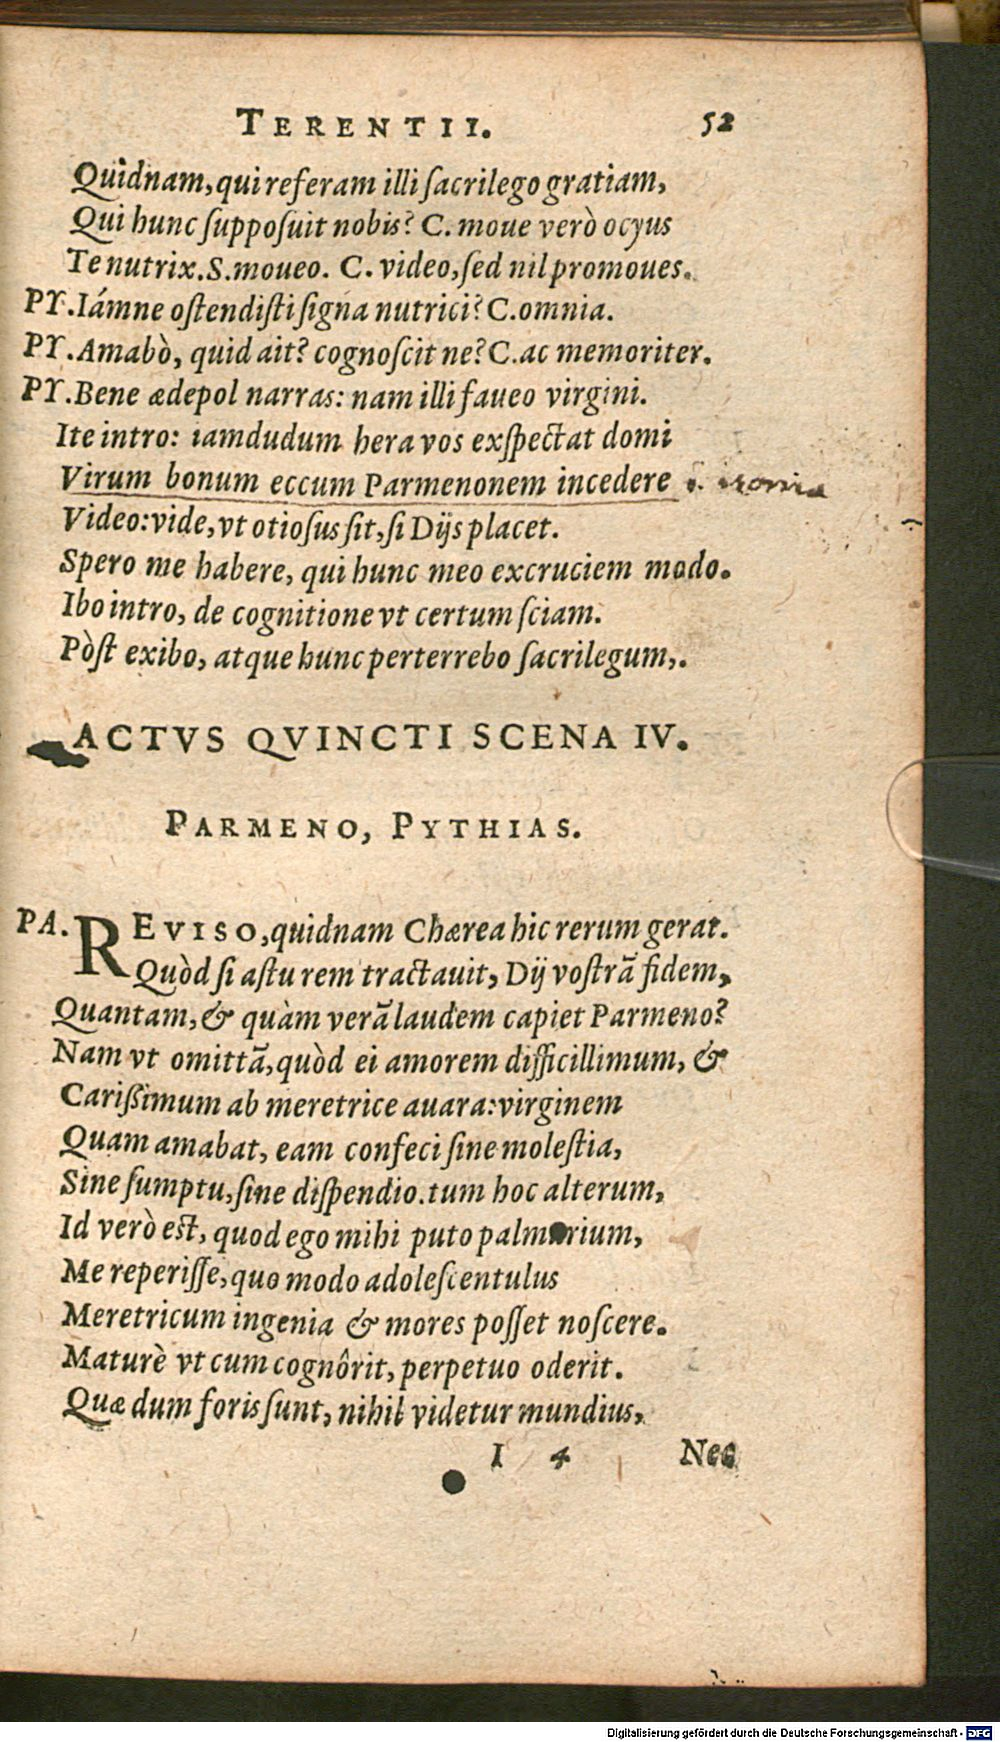 TERENTII. 52
Quidnam, qui referam illi sacrilego gratiam,
Qui hunc supposuit nobis? C. moue verò ocyus
Te nutrix. S. moueo. C. video, sed nil promoues.
PY. Iámne ostendisti signa nutrici? C. omnia.
PY. Amabò, quid ait? cognoscit ne? C. ac memoriter.
PY. Bene ædepol narras: nam illi faueo virgini.
Ite intro: iamdudum hera vos exspectat domi
Virum bonum eccum Parmenonem incedere i. ironia
Video: vide, vt otiosus sit, si Dijs placet.
Spero me habere, qui hunc meo excruciem modo.
Ibo intro, de cognitione vt certum sciam.
Pòst exibo, atque hunc perterrebo sacrilegum,.
ACTVS QVINCTI SCENA IV.
PARMENO, PYTHIAS.
PA. REVISO, quidnam Chærea hic rerum gerat.
Quòd si astu rem tractauit, Dij vostrã fidem,
Quantam, & quàm verã laudem capiet Parmeno?
Nam vt omittã, quòd ei amorem difficillimum, &
Carißimum ab meretrice auara: virginem
Quam amabat, eam confeci sine molestia,
Sine sumptu, sine dispendio. tum hoc alterum,
Id verò est, quod ego mihi puto palmarium,
Me reperisse, quo modo adolescentulus
Meretricum ingenia & mores posset noscere.
Maturè vt cum cognôrit, perpetuo oderit.
Quæ dum foris sunt, nihil videtur mundius,
I 4 Nec
Digitalisierung gefördert durch die Deutsche Forschungsgemeinschaft - DFG